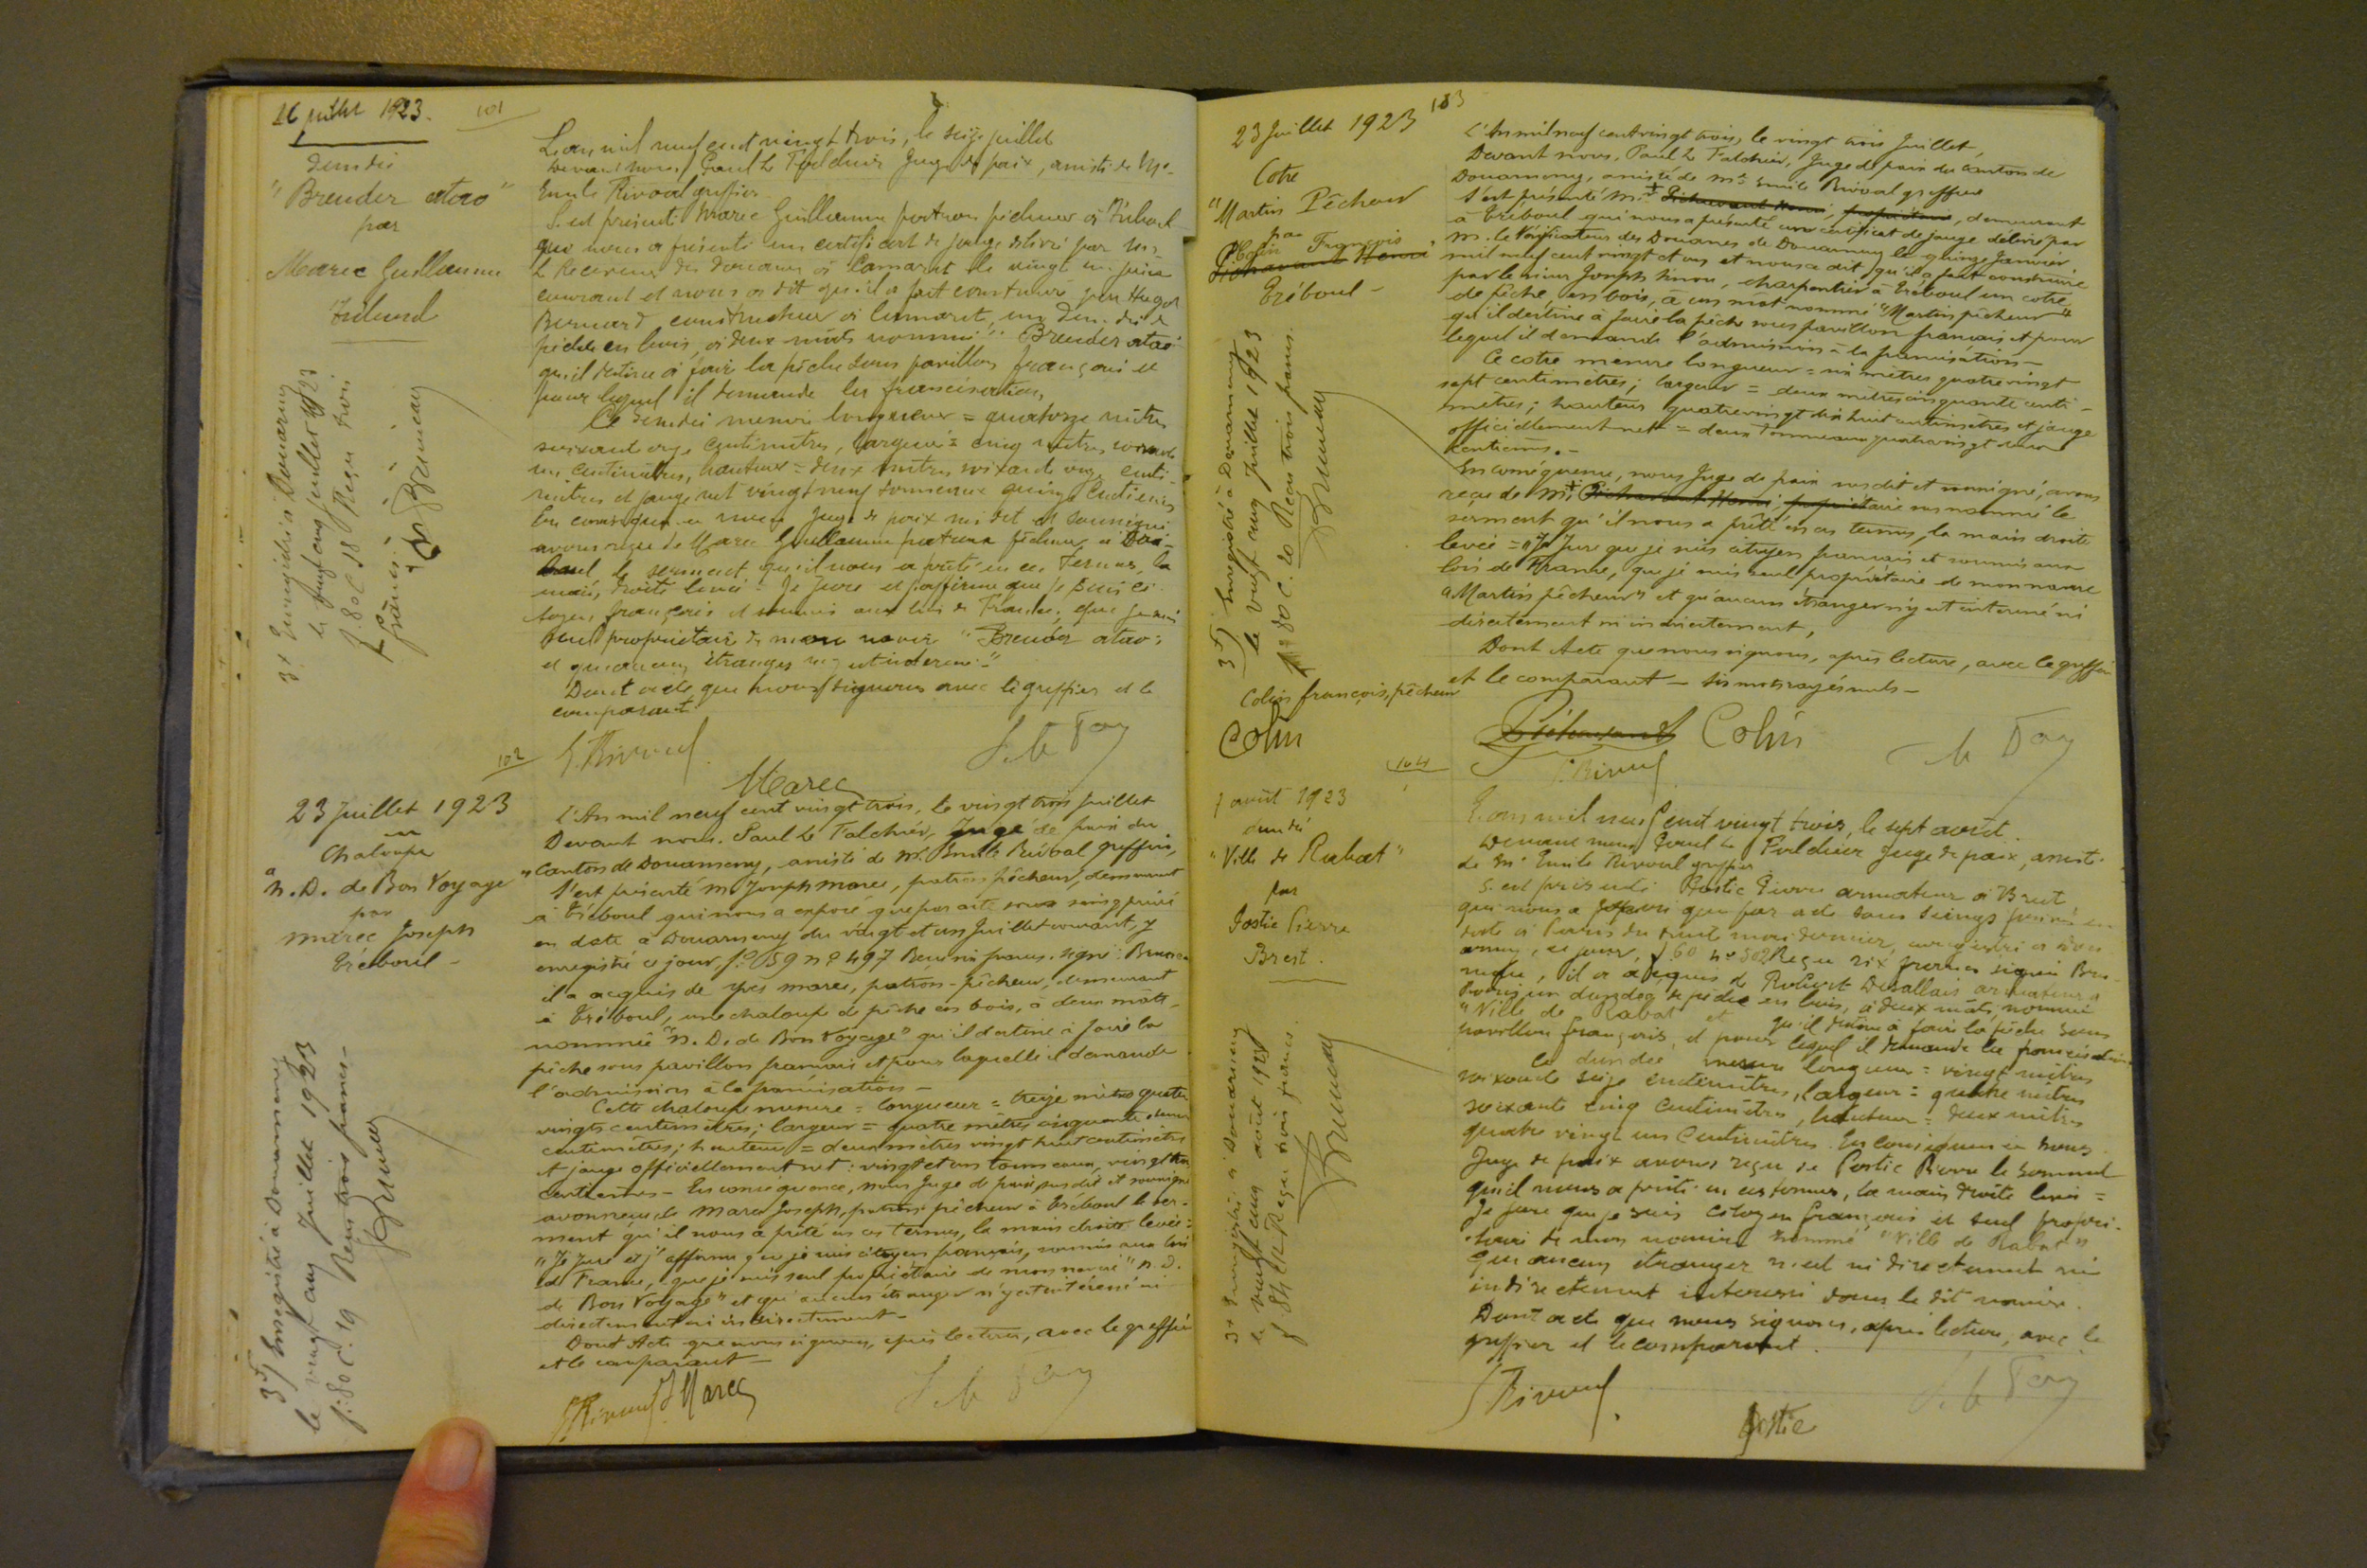 16 juillet 1923. 101
dundée
"Breuder atao"
par
Marec Guillaume
Tréboul
3f Enregistré à Douarnenez
le vingt cinq juillet 1923
f. 80 C 18 Reçu trois
francs
L'an mil neuf cent vingt trois, le seize juillet
Devant nous Paul Le Falchier Juge de paix, assisté de Me
Emile Rivoal greffier
S'est présenté Marec Guillaume patron pêcheur à Tréboul
qui nous a présenté un certificat de jauge délivré par Mr
le Receveur des Douanes à Camaret le vingt
courant et nous a dit qu'il a fait construire par
Bernard constructeur à Camaret, un dundée de
pêche en bois, à deux mâts nommé "Breuder atao"
qu'il destine à faire la pêche sous pavillon français et
pour lequel il demande la francisation
Ce dundée mesure longueur = quatorze mètres
soixante onze centimètres, largeur = cinq mètres
un centimètres, hauteur = deux mètres soixante onze centi-
mètres et jauge net vingt neuf tonneaux quinze centièmes
En conséquence nous Juge de paix susdit et soussigné
avons reçu de Marec Guillaume patron pêcheur à
le serment qu'il nous a prêté en ces termes, la
main droite levée = Je jure et j'affirme que je suis ci-
toyen français et soumis aux lois de France, que je suis
seul propriétaire de mon navire "Breuder atao"
et qu'aucun étranger n'y est intéressé"
Dont acte que nous signons avec le greffier et le
comparant
E. Rivoal
Marec
102
23 Juillet 1923
Chaloupe
"N.D. de Bon Voyage"
par
Marec Joseph
Tréboul -
3f/ Enregistré à Douarnenez
le vingt cinq Juillet 1923
f. 80 C. 19 Reçu trois francs -
L'An mil neuf cent vingt trois, le vingt trois Juillet
Devant nous, Paul Le Falchier, Juge de paix du
Canton de Douarnenez, assisté de Me Emile Rivoal greffier,
S'est présenté M. Joseph Marec, patron pêcheur, demeurant
à Tréboul qui nous a exposé que par acte sous seing privé
en date à Douarnenez du vingt et un Juillet courant, y
enregistré ce jour, fo 59 no 497 Reçu six francs. signé: Bruneau
il a acquis de Yves Marec, patron-pêcheur, demeurant
à Tréboul, une chaloupe de pêche en bois, à deux mâts,
nommée "N.D. de Bon Voyage" qu'il destine à faire la
pêche sous pavillon français et pour laquelle il demande
l'admission à la francisation -
Cette chaloupe mesure = longueur = treize mètres quatre
vingts centimètres; largeur = quatre mètres cinquante deux
centimètres; hauteur = deux mètres vingt huit centimètres
et jauge officiellement net: vingt et un tonneaux, vingt
centièmes - En conséquence, nous Juge de paix, susdit et soussigné
avons reçu de Marec Joseph, patron pêcheur à Tréboul le ser-
ment qu'il nous a prêté en ces termes, la main droite levée:
"Je jure et j'affirme que je suis citoyen français, soumis aux lois
de France, que je suis seul propriétaire de mon navire "N.D.
de Bon Voyage" et qu'aucun étranger n'y est intéressé ni
directement ni indirectement -
Dont Acte que nous signons, après lecture, avec le greffier
et le comparant -
E Rivoal J Marec
103
23 Juillet 1923
Cotre
"Martin Pêcheur
par
Colin François
Tréboul -
3f/ Enregistré à Douarnenez
le vingt cinq Juillet 1923
fo 80 C. 20 Reçu trois francs.
Bruneau
Colin françois, pêcheur
Colin
L'An mil neuf cent vingt trois, le vingt trois Juillet,
Devant nous, Paul Le Falchier, Juge de paix du canton de
Douarnenez, assisté de Me Emile Rivoal greffier
S'est présenté M. Henri, propriétaire, demeurant
à Tréboul qui nous a présenté un certificat de jauge délivré par
M. le Vérificateur des Douanes de Douarnenez le quinze Janvier
mil neuf cent vingt et un et nous a dit qu'il a fait construire
par le sieur Joseph, charpentier à Tréboul un cotre
de pêche, en bois, à un mat nommé "Martin pêcheur"
qu'il destine à faire la pêche sous pavillon français et pour
lequel il demande l'admission à la francisation -
Ce cotre mesure longueur = six mètres quatre vingt
sept centimètres; largeur = deux mètres cinquante centi-
mètres; hauteur quatre vingt dix huit centimètres et jauge
officiellement net = deux Tonneaux quatre vingt
centièmes. -
En conséquence, nous Juge de paix susdit et soussigné, avons
reçu de M. Henri, propriétaire susnommé le
serment qu'il nous a prêté en ces termes, la main droite
levée = "Je Jure que je suis citoyen français et soumis aux
lois de France, que je suis seul propriétaire de mon navire
"Martin pêcheur" et qu'aucun étranger n'y est intéressé ni
directement ni indirectement,
Dont Acte que nous signons, après lecture, avec le greffier
et le comparant - six mots rayés nuls -
Colin
E. Rivoal
104
7 août 1923
dundée
"Ville de Rabat"
par
Postic Pierre
Brest.
3f Enregistré à Douarnenez
le vingt cinq août 1923
f 84 Reçu trois francs.
Bruneau
L'an mil neuf cent vingt trois, le sept août.
Devant nous Paul Le Falchier Juge de paix, assisté
de Me Emile Rivoal greffier
S'est présenté Postic Pierre armateur à Brest
qui nous a exposé que par acte sous seings privés en
date à Paris du trente mois dernier, enregistré à Douar-
nenez, ce jour, f 60 no 502 Reçu six francs signé Bru-
neau, il a acquis de Robert Desallais armateur à
Paris un dundée de pêche en bois, à deux mâts, nommé
"Ville de Rabat" et qu'il destine à faire la pêche sous
pavillon français, et pour lequel il demande la francisation
Ce dundée mesure longueur = vingt mètres
soixante seize centimètres, largeur = quatre mètres
soixante cinq centimètres, hauteur = deux mètres
quatre vingt un centimètres. En conséquence nous
Juge de paix avons reçu de Postic Pierre le serment
qu'il nous a prêté en ces termes, la main droite levée =
Je jure que je suis citoyen français et seul proprié-
taire de mon navire nommé "Ville de Rabat"
qu'aucun étranger n'est ni directement ni
indirectement intéressé dans le dit navire.
Dont acte que nous signons, après lecture, avec le
greffier et le comparant.
E Rivoal
Postic